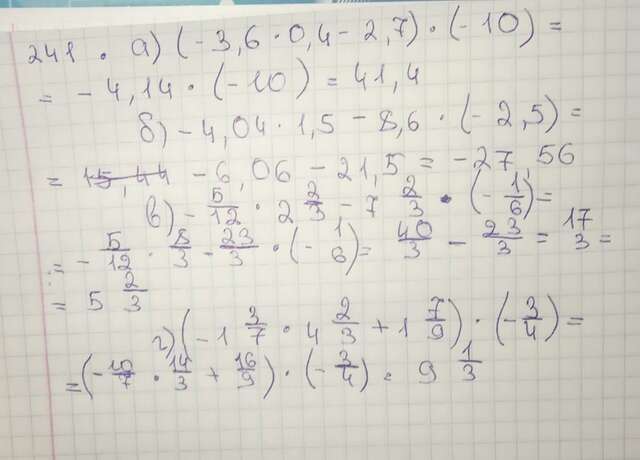 241. а) (-3,6 · 0,4 - 2,7) · (-10) =
= -4,14 · (-10) = 41,4
б) -4,04 · 1,5 - 8,6 · (-2,5) =
= 15,44 -6,06 - 21,5 = -27,56
в) - 5/12 · 2 2/3 - 7 2/3 · (- 1/6) =
= - 5/12 · 8/3 - 23/3 · (- 1/6) = 40/3 - 23/3 = 17/3 =
= 5 2/3
г) (-1 3/7 · 4 2/3 + 1 7/9) · (- 3/4) =
= (- 10/7 · 14/3 + 16/9) · (- 3/4) = 9 1/3